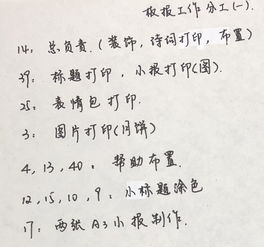 板报工作分工(一).
14: 总负责.(装饰,诗词打印,布置)
39: 标题打印,小报打印(图).
25: 表情包打印.
3: 图片打印(月饼)
4, 13, 40: 帮助布置.
12, 15, 10, 9: 小标题涂色
17: 两张A3小报制作.